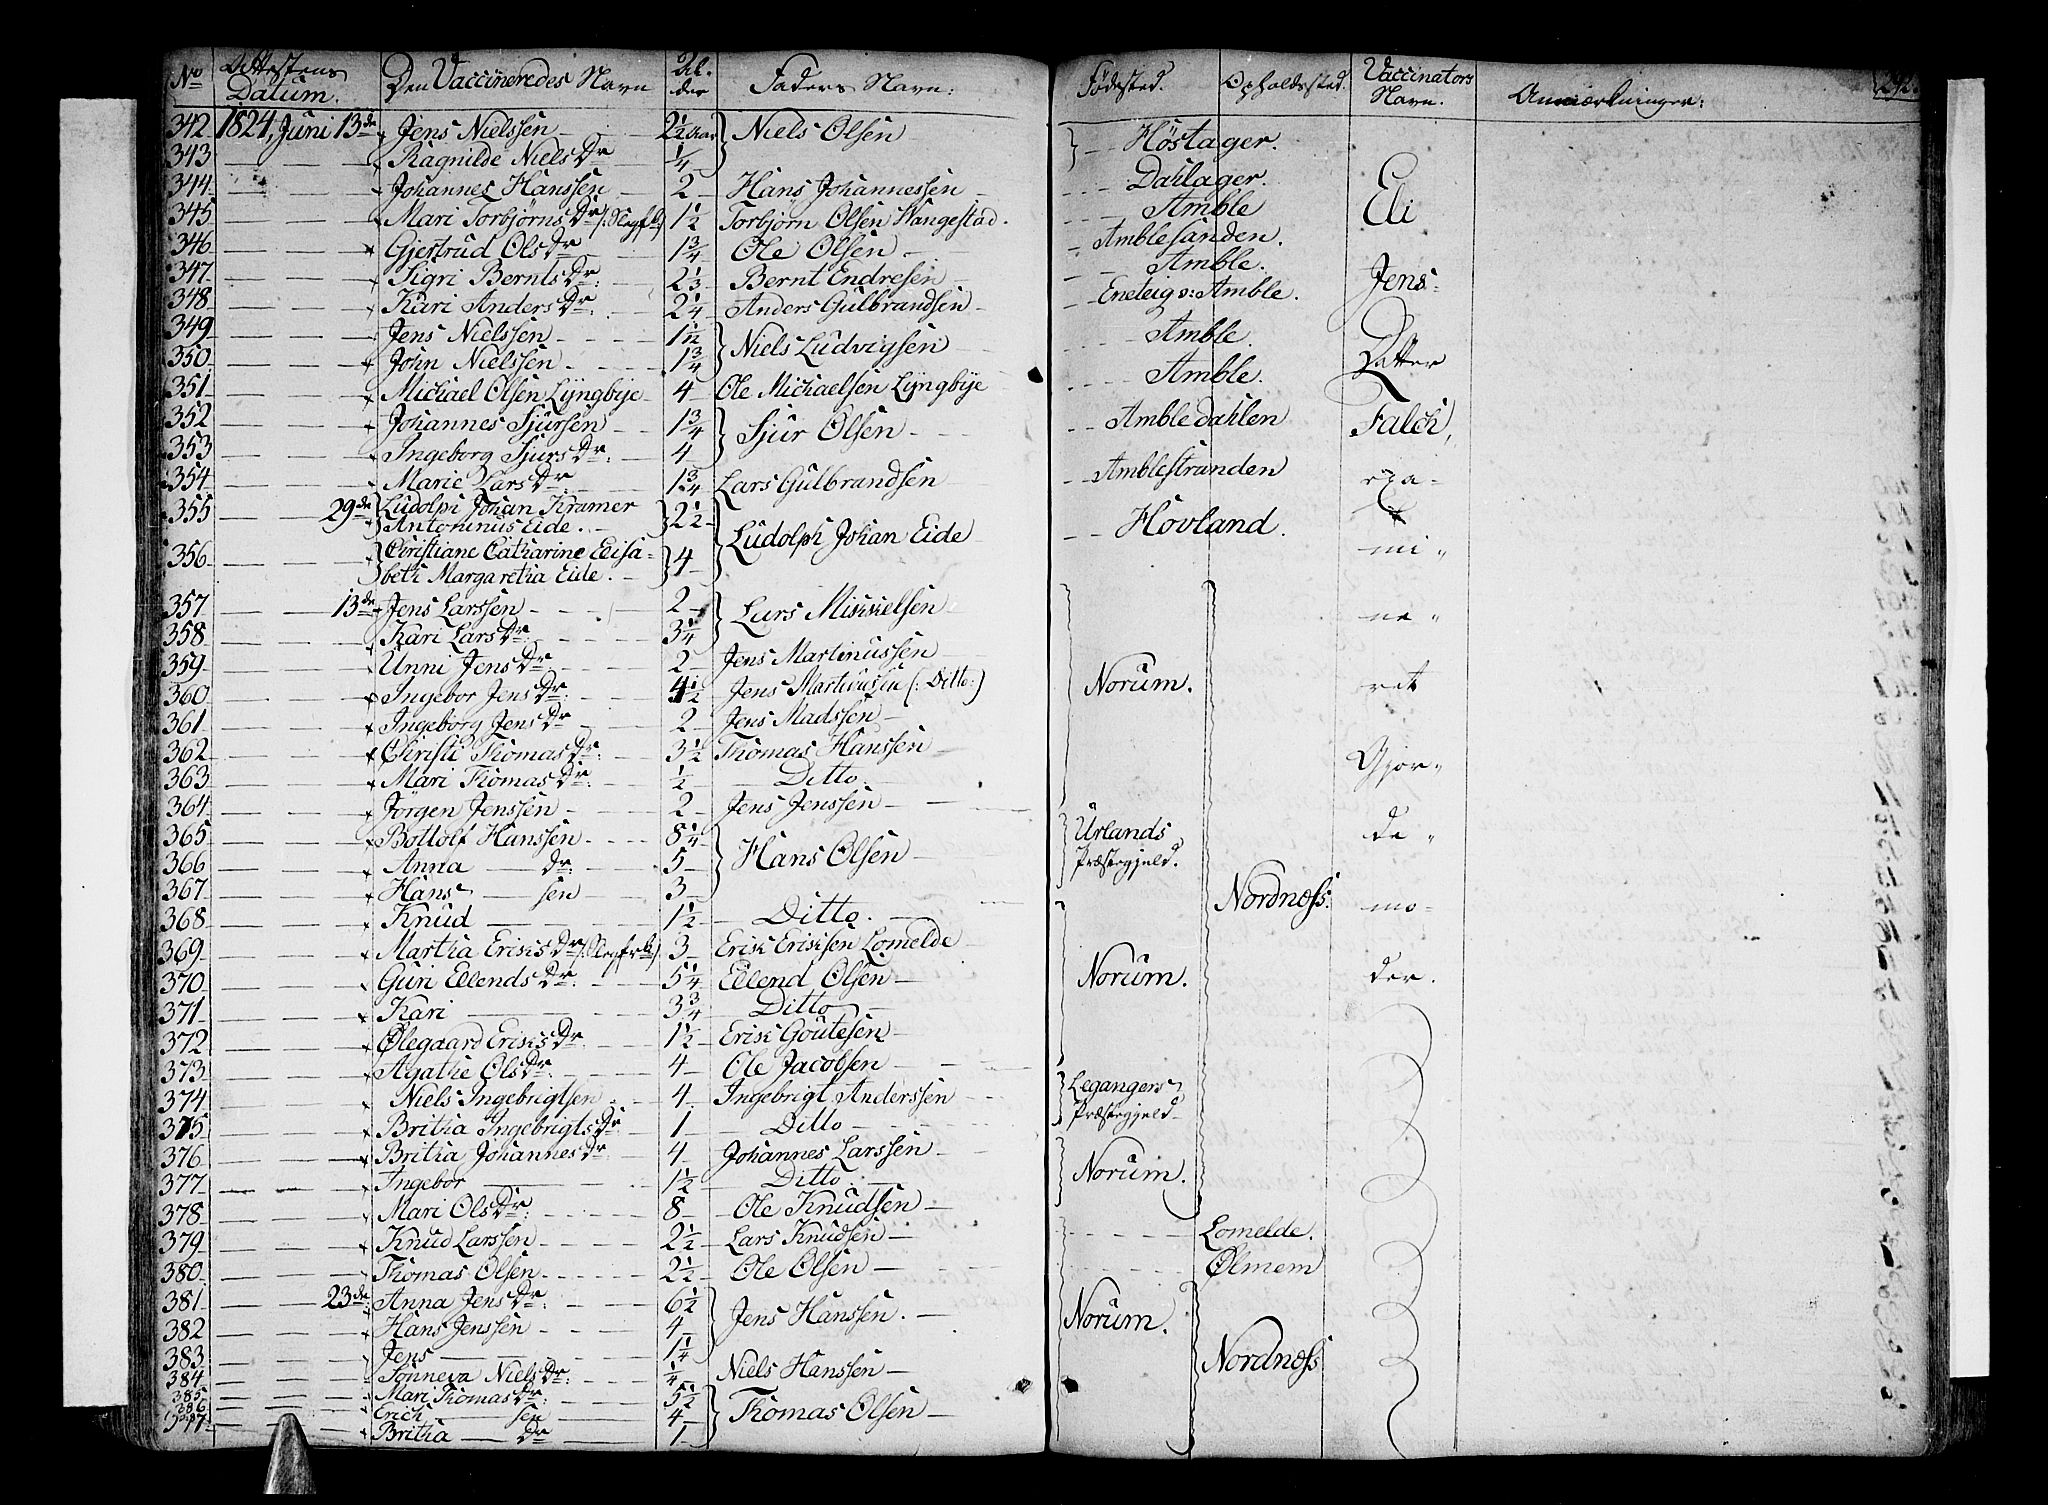 No Attestens Datum. Den Vaccineredes Navn Al- der Faders Navn: Födested. Opholdssted. Vaccinators Navn. Anmærkninger: 292.
342 1824, Juni 13de Jens Nielssen 2 1/2 Aar Niels Olsen Höstager.
343 Ragnilde Niels Dr 1/4
344 Johannes Hanssen 2 Hans Johannessen Dahlager.
345 Mari Torbjörns Dr 1 1/2 Torbjörn Olsen Hangestad. Amble Eli
346 Gjertrud Ols Dr 1 3/4 Ole Olsen Amblesanden.
347 Sigri Bernts Dr: 2 1/3 Bernt Endresen Amble.
348 Kari Anders Dr: 2 1/4 Anders Gulbrandsen Eneteig v: Amble. Jens
349 Jens Nielssen 1 1/2 Niels Ludvigsen Amble.
350 John Nielssen 1 3/4 Datter
351 Michael Olsen Lyngbye 4 Ole Michaelsen Lyngbye Amble.
352 Johannes Sjursen 1 3/4 Sjur Olsen Ambledahlen Falch,
353 Ingeborg Sjurs Dr: 4
354 Marie Lars Dr 1 3/4 Lars Gulbrandsen Amblestranden exa-
355 29de Ludolph Johan Kramer 2 1/2 Ludolph Johan Eide Hovland.
Antoninus Eide.
356 Christiane Catharine Elisa- 4 mi-
beth Margaretha Eide.
357 13de Jens Larssen 2 Lars Mikkelsen ne-
358 Kari Lars Dr: 3 1/4
359 Unni Jens Dr: 2 Jens Martinussen
360 Ingebor Jens Dr: 4 1/2 Jens Martinussen (: Ditto :) Norum. ret
361 Ingeborg Jens Dr 2 Jens Madssen
362 Christi Thomas Dr: 3 1/2 Thomas Hanssen Gjor-
363 Mari Thomas Dr: 1/2 Ditto
364 Jörgen Jenssen 2 Jens Jenssen
365 Bottolf Hanssen 8 1/4 Hans Olsen Urlands de-
366 Anna dr: 5 Præstegjeld.
367 Hans sen 3 Nordnæss:
368 Knud 1 1/2 Ditto. mo-
369 Martha Eriks Dr 3 Erik Eriksen Lomelde
370 Guri Ellends Dr: 5 1/4 Ellend Olsen Norum. der.
371 Kari 3 3/4 Ditto
372 Ølegaard Eriks Dr: 1 1/2 Erik Goutesen
373 Agathe Ols Dr: 4 Ole Jacobsen
374 Niels Ingebrigtsen 4 Ingebrigt Anderssen Legangers
375 Britha Ingebrigts Dr 1 Ditto Præstegjeld
376 Britha Johannes Dr 4 Johannes Larssen Norum.
377 Ingebor 1 1/2 Ditto
378 Mari Ols Dr: 8 Ole Knudsen
379 Knud Larssen 2 1/2 Lars Knudsen Lomelde.
380 Thomas Olsen 2 1/2 Ole Olsen Ølmem
381 23de Anna Jens Dr: 6 1/2 Jens Hanssen. Norum.
382 Hans Jenssen 4
383 Jens 1 1/4 Nordnæss
384 Sönneva Niels Dr: 1/4 Niels Hanssen
385 Mari Thomas Dr 5 1/2 Thomas Olsen
386 Erich sen 4
387 Britha Dr 1